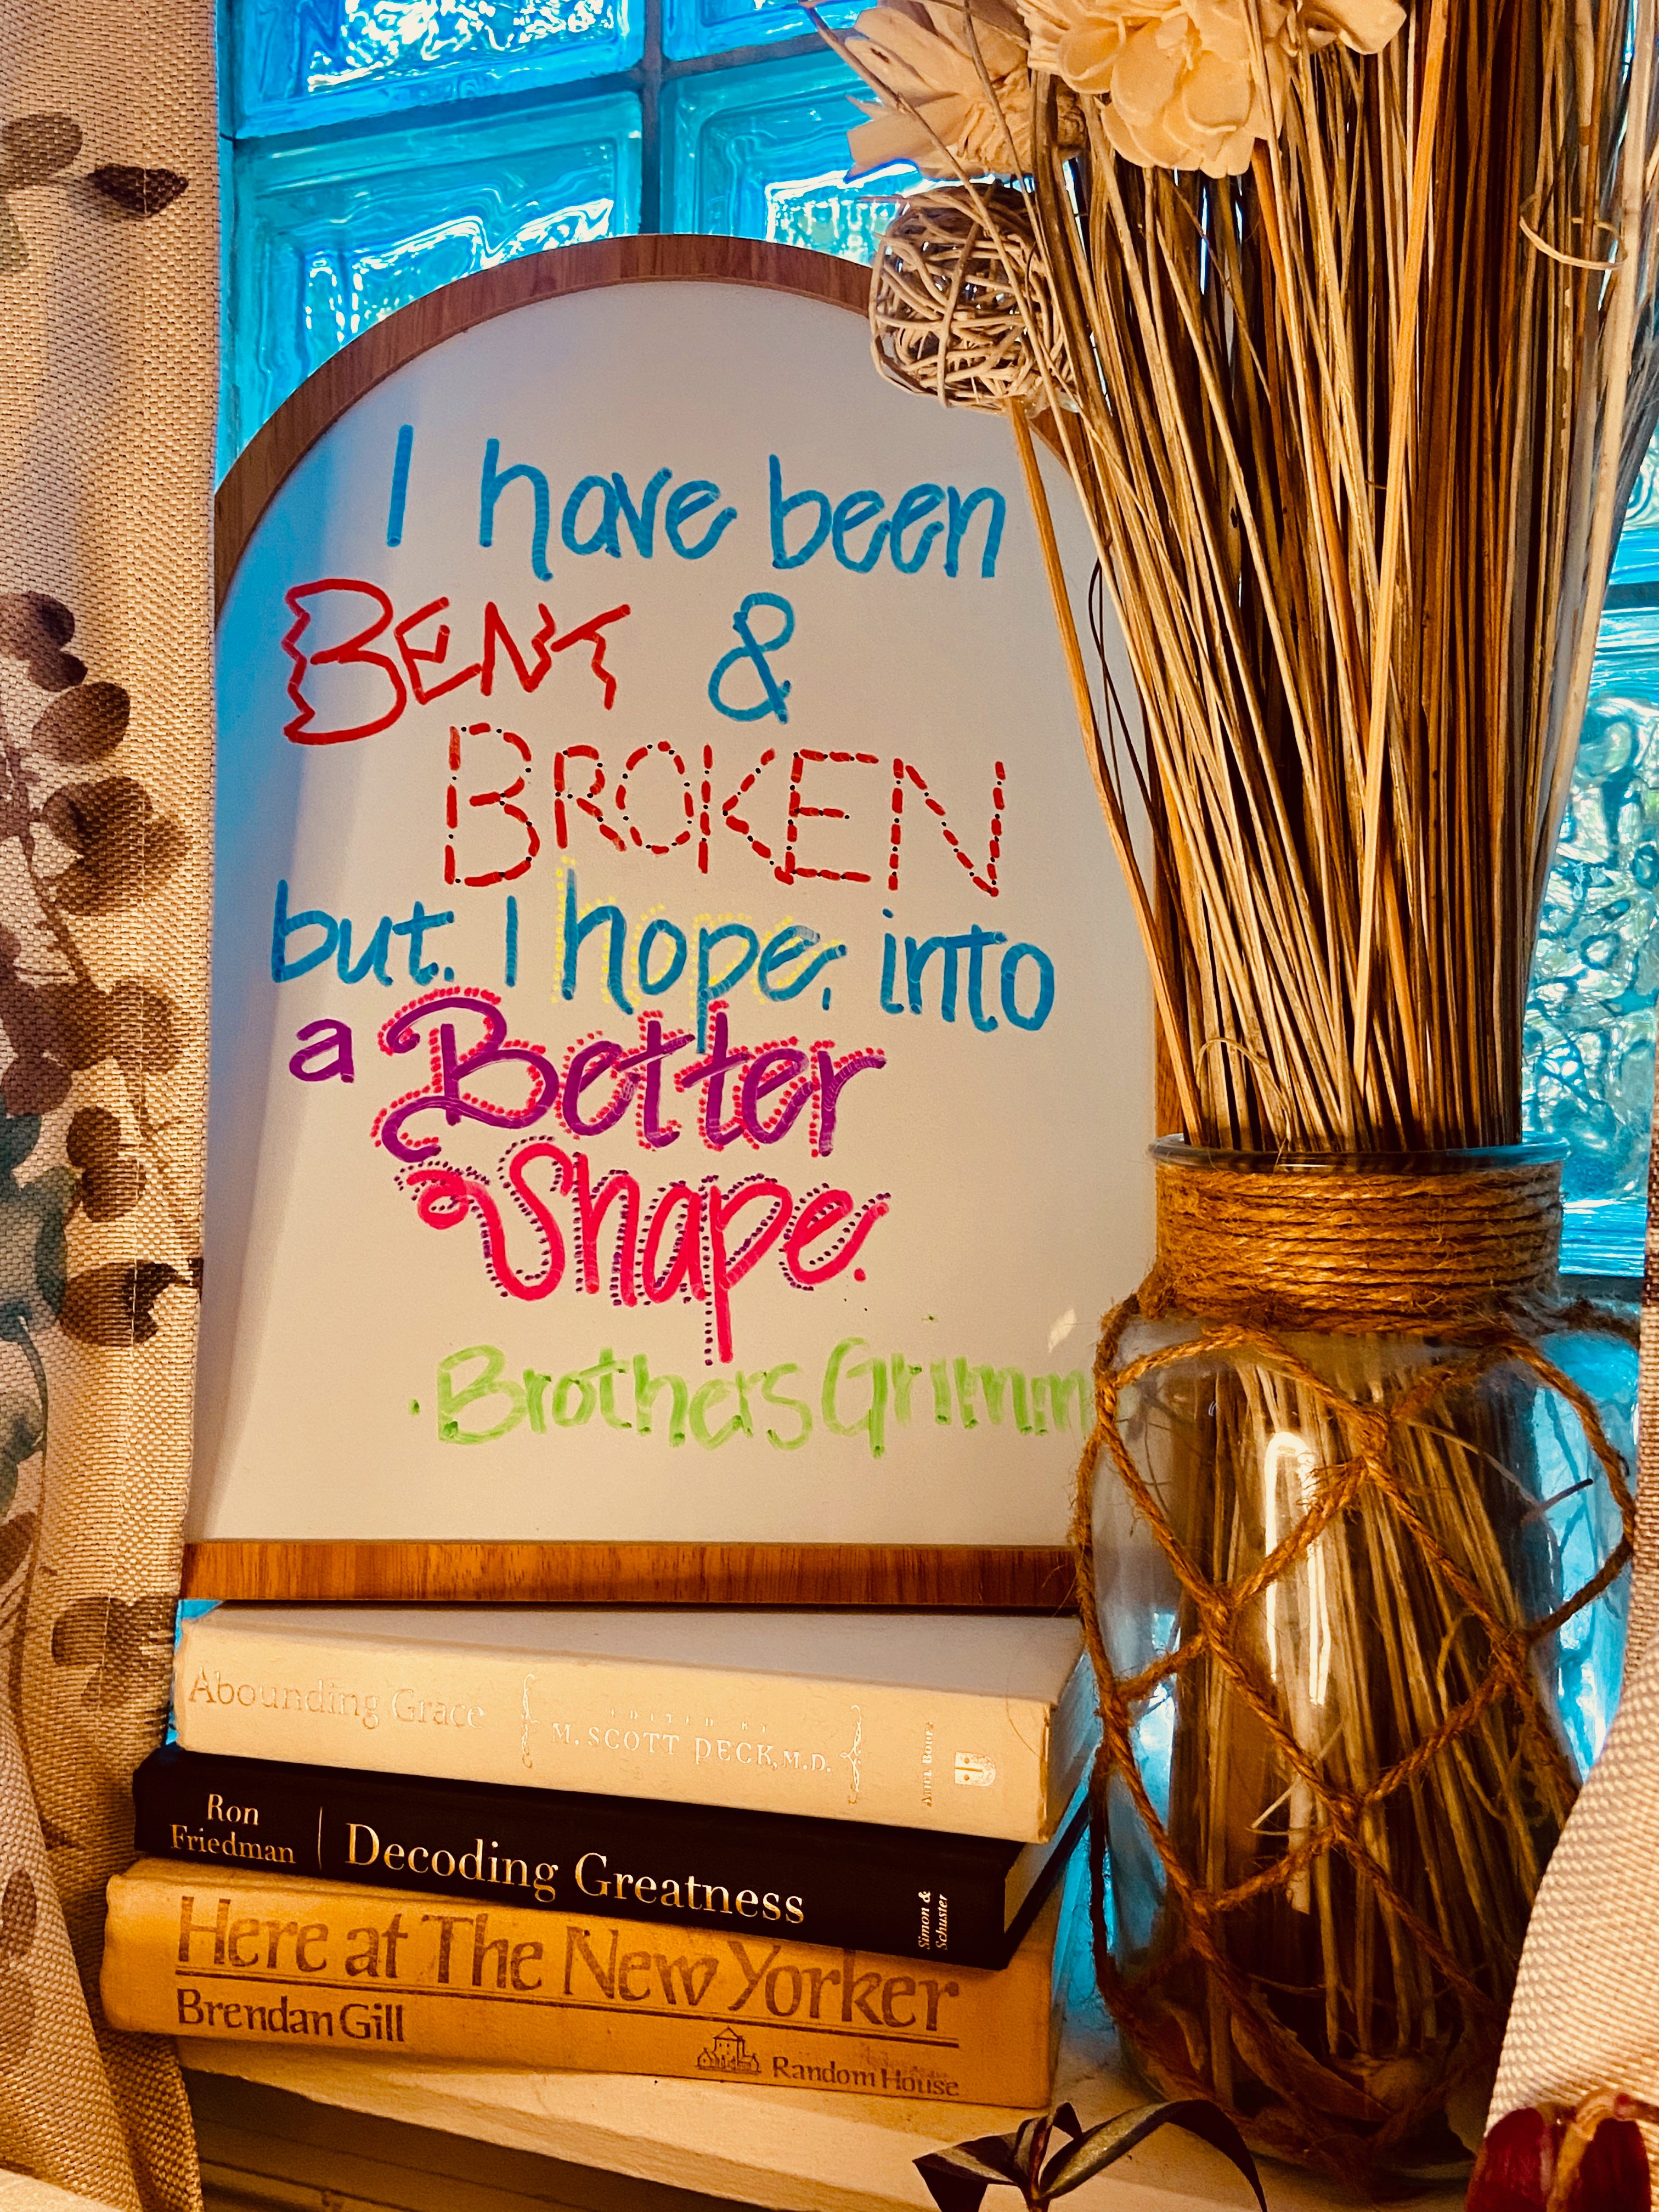 I have been
BENT &
BROKEN
but. I hope, into
a Better
Shape.
. Brothers Grimm
Abounding Grace
EDITED BY
M. SCOTT PECK, M.D.
Ron
Friedman
Decoding Greatness
Simon &
Schuster
Here at The New Yorker
Brendan Gill
Random House